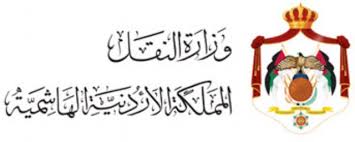 وزارة النقل
المملكة الأردنية الهاشمية